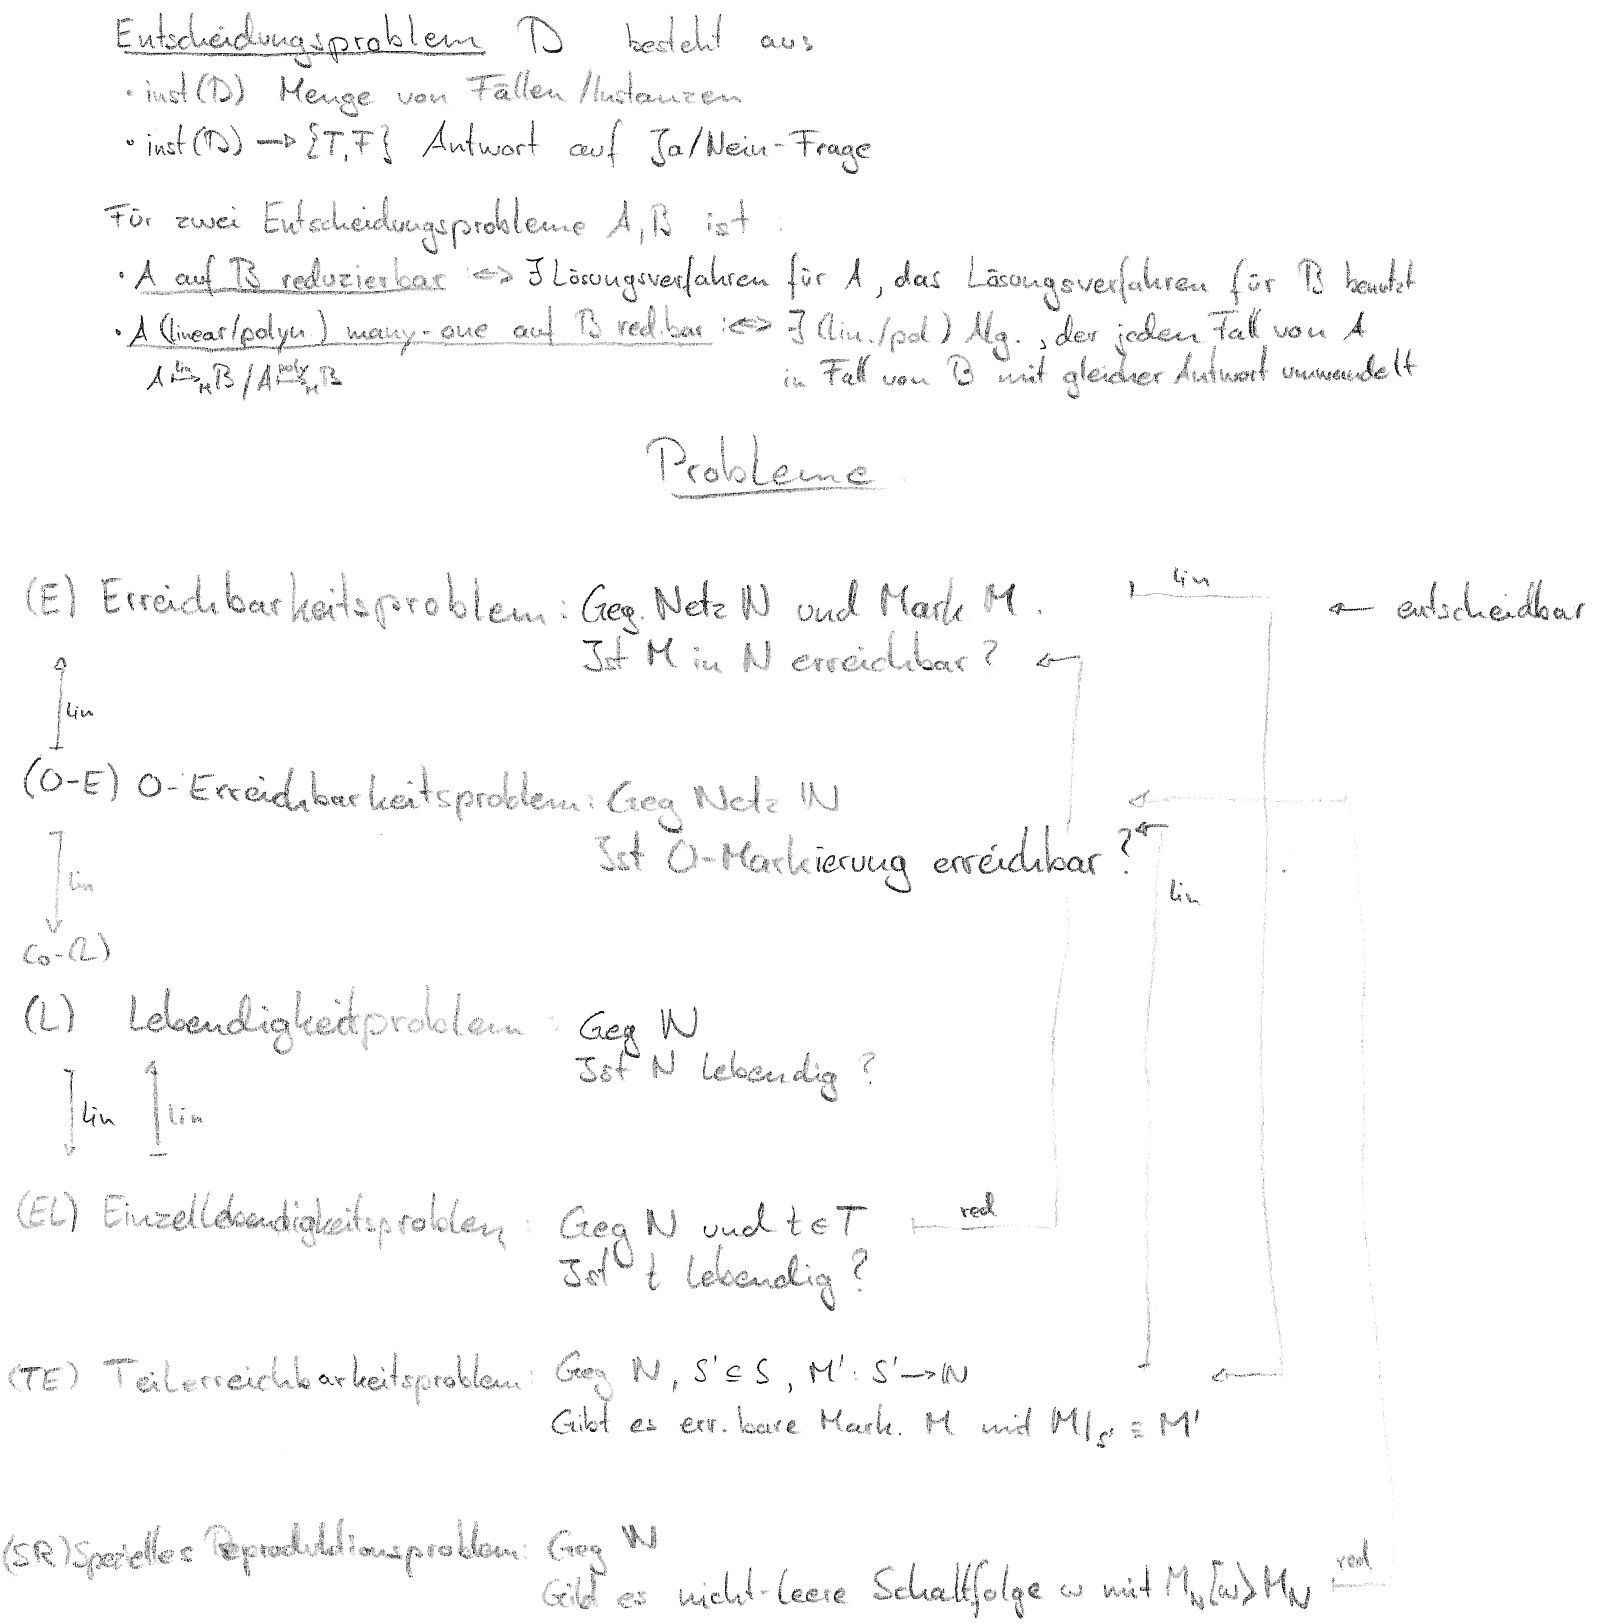 Entscheidungsproblem D besteht aus
• inst(D) Menge von Fällen/Instanzen
• inst(D) → {T,F} Antwort auf Ja/Nein-Frage
Für zwei Entscheidungsprobleme A,B ist :
• A auf B reduzierbar :⇔ ∃ Lösungsverfahren für A, das Lösungsverfahren für B benutzt
• A (linear/polyn.) many-one auf B red.bar :⇔ ∃ (lin./pol) Alg., der jeden Fall von A
in Fall von B mit gleicher Antwort umwandelt
A ↦lin M B / A ↦poly M B
Probleme
(E) Erreichbarkeitsproblem: Geg. Netz N und Mark. M. lin ← entscheidbar
Ist M in N erreichbar?
lin
(O-E) O-Erreichbarkeitsproblem: Geg Netz N
Ist O-Markierung erreichbar?
lin
lin
Co-(L)
(L) Lebendigkeitproblem: Geg N
Ist N lebendig?
lin lin
(EL) Einzellebendigkeitsproblem: Geg N und t∈T red
Ist t lebendig?
(TE) Teilerreichbarkeitsproblem: Geg N, S'⊆S, M': S'→ℕ
Gibt es err.bare Mark. M mit M|S' ≡ M'
(SR) Spezielles Reproduktionsproblem: Geg N
Gibt es nicht-leere Schaltfolge w mit M_N[w>M_N red